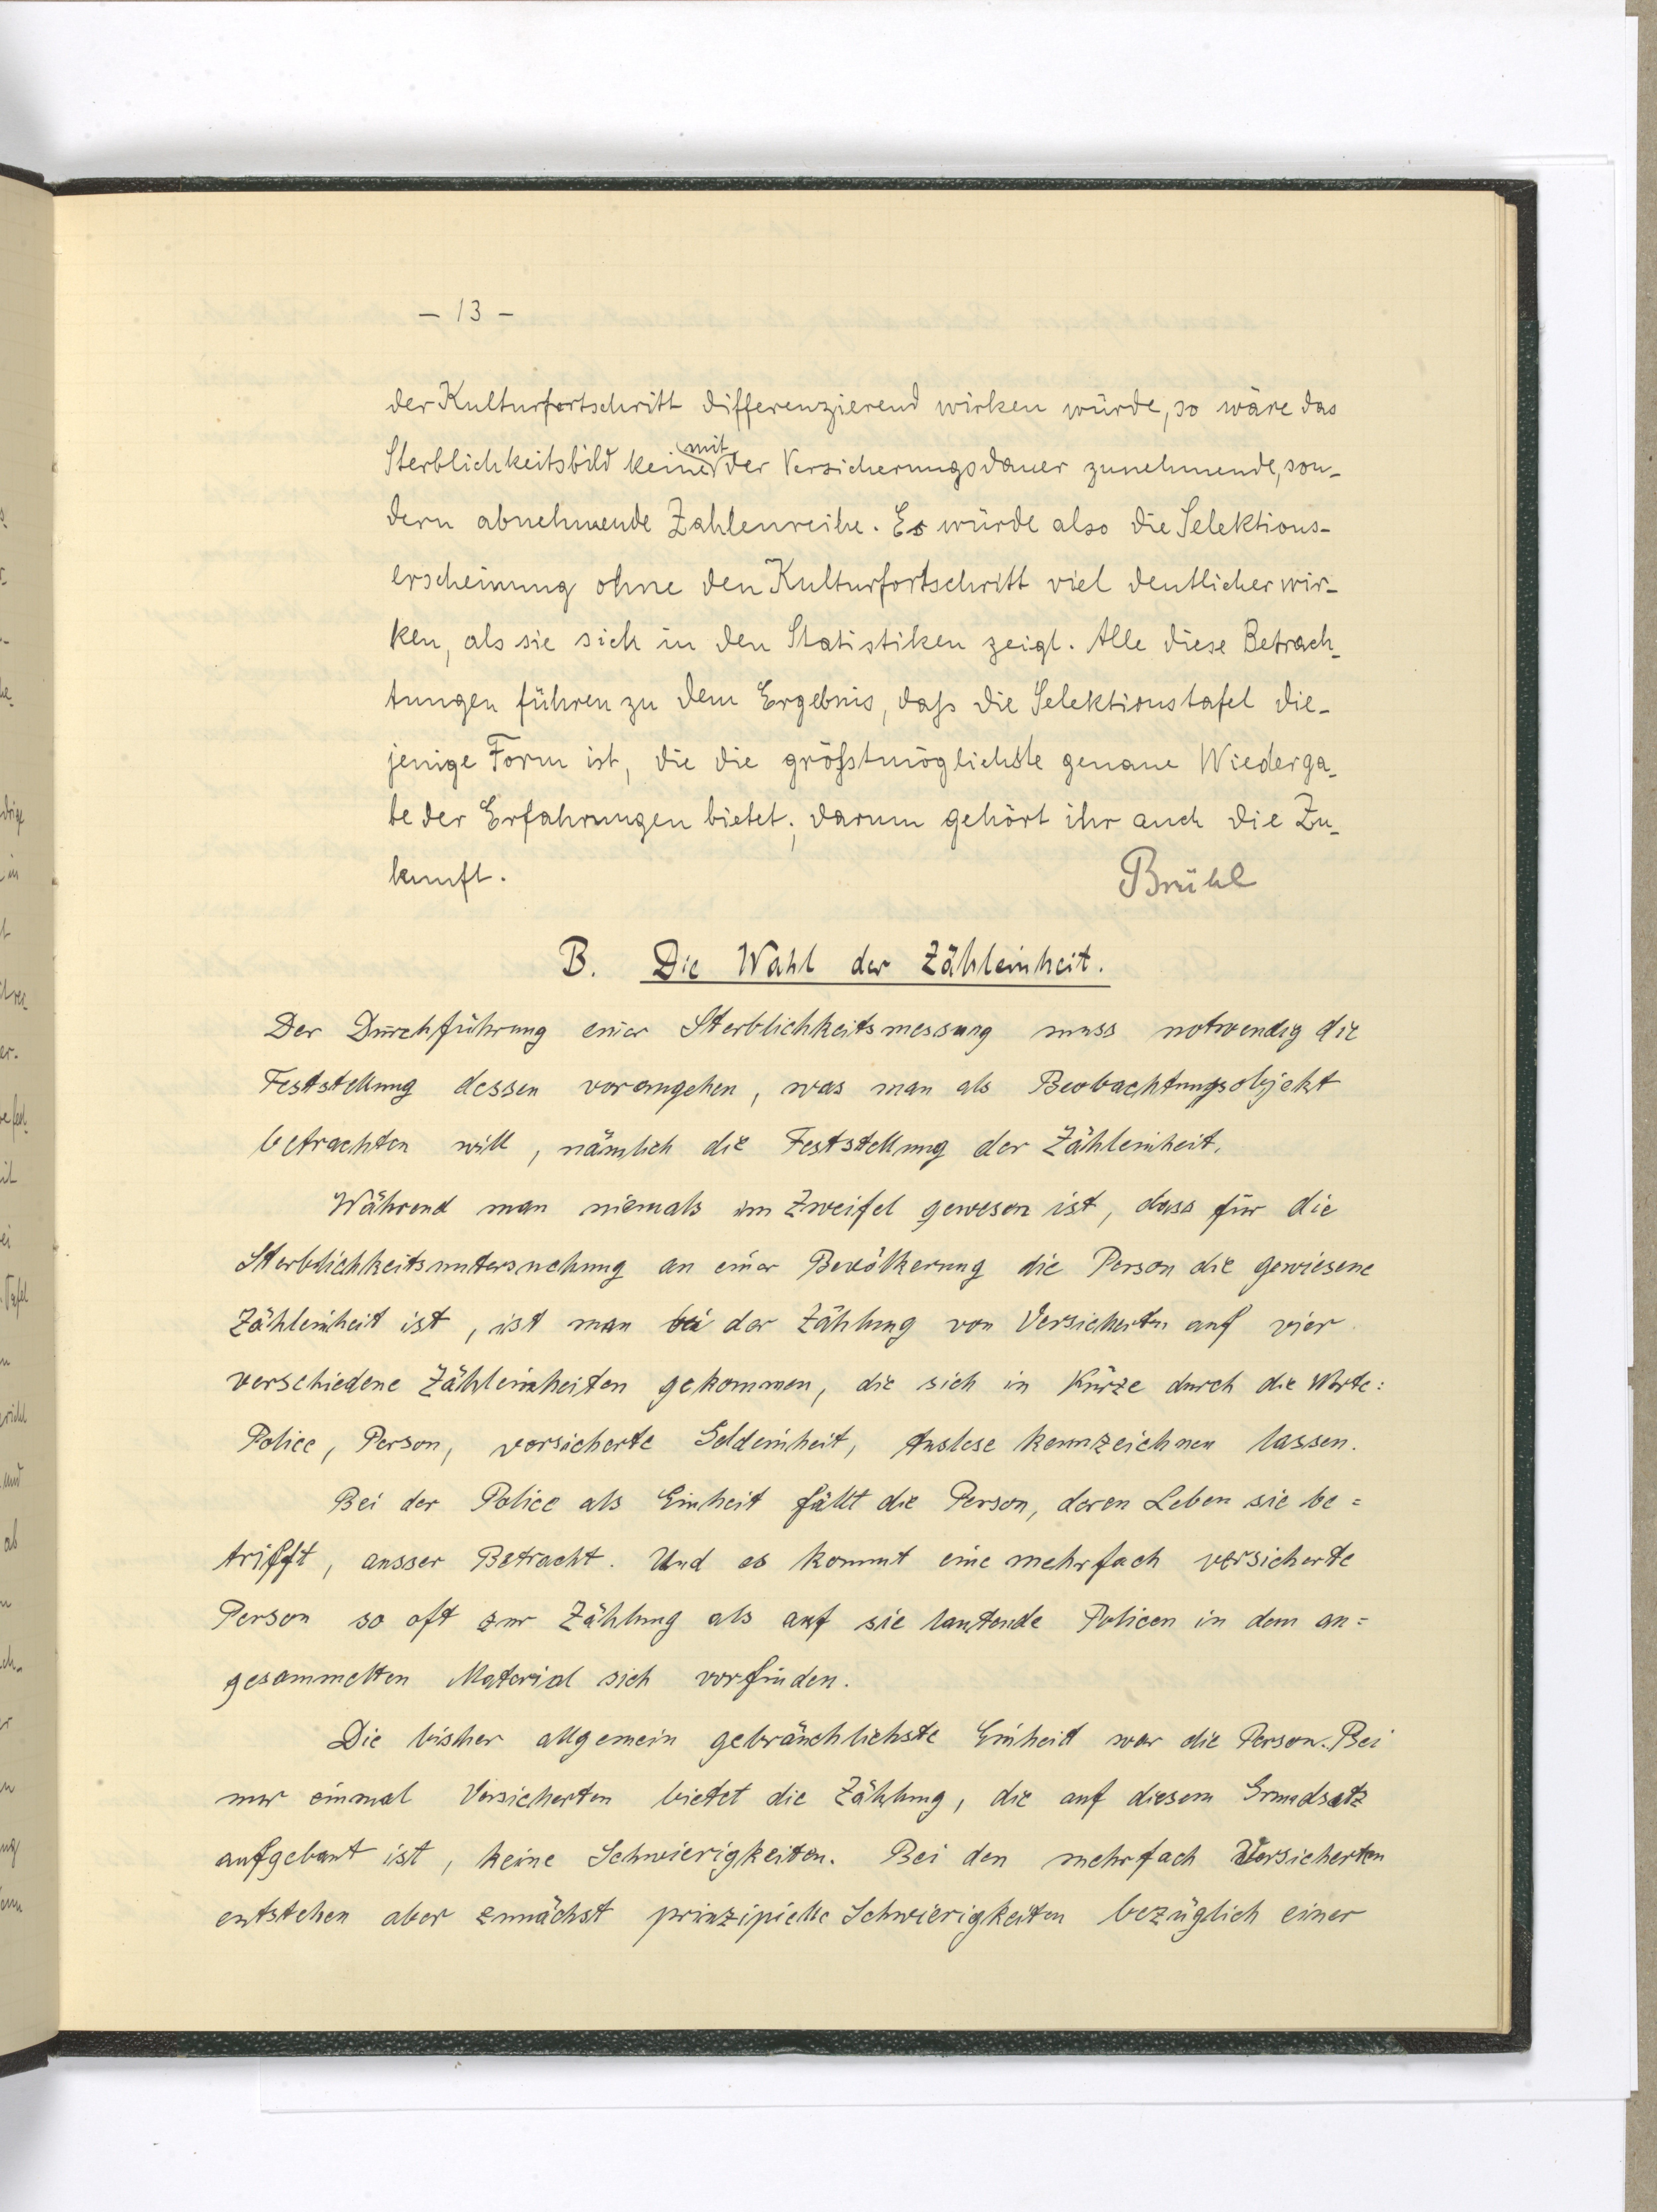 – 13 –
der Kulturfortschritt differenzierend wirken würde, so wäre das
Sterblichkeitsbild keine mit der Versicherungsdauer zunehmende, son-
dern abnehmende Zahlenreihe. Es würde also die Selektions-
erscheinung ohne den Kulturfortschritt viel deutlicher wir-
ken, als sie sich in den Statistiken zeigt. Alle diese Betrach-
tungen führen zu dem Ergebnis, daß die Selektionstafel die-
jenige Form ist, die die größtmöglichste genaue Wiederga-
be der Erfahrungen bietet; darum gehört ihr auch die Zu-
kunft.
Brühl
B. Die Wahl der Zähleinheit.
Der Durchführung einer Sterblichkeitsmessung muss notwendig die
Feststellung dessen vorangehen, was man als Beobachtungsobjekt
betrachten will, nämlich die Feststellung der Zähleinheit.
Während man niemals im Zweifel gewesen ist, dass für die
Sterblichkeitsuntersuchung an einer Bevölkerung die Person die gewiesene
Zähleinheit ist, ist man bei der Zählung von Versicherten auf vier
verschiedene Zähleinheiten gekommen, die sich in Kürze durch die Worte:
Police, Person, versicherte Geldeinheit, Auslese kennzeichnen lassen.
Bei der Police als Einheit fällt die Person, deren Leben sie be=
trifft, ausser Betracht. Und es kommt eine mehrfach versicherte
Person so oft zur Zählung als auf sie lautende Policen in dem an=
gesammelten Material sich vorfinden.
Die bisher allgemein gebräuchlichste Einheit war die Person. Bei
nur einmal Versicherten bietet die Zählung, die auf diesem Grundsatz
aufgebaut ist, keine Schwierigkeiten. Bei den mehrfach Versicherten
entstehen aber zunächst prinzipielle Schwierigkeiten bezüglich einer